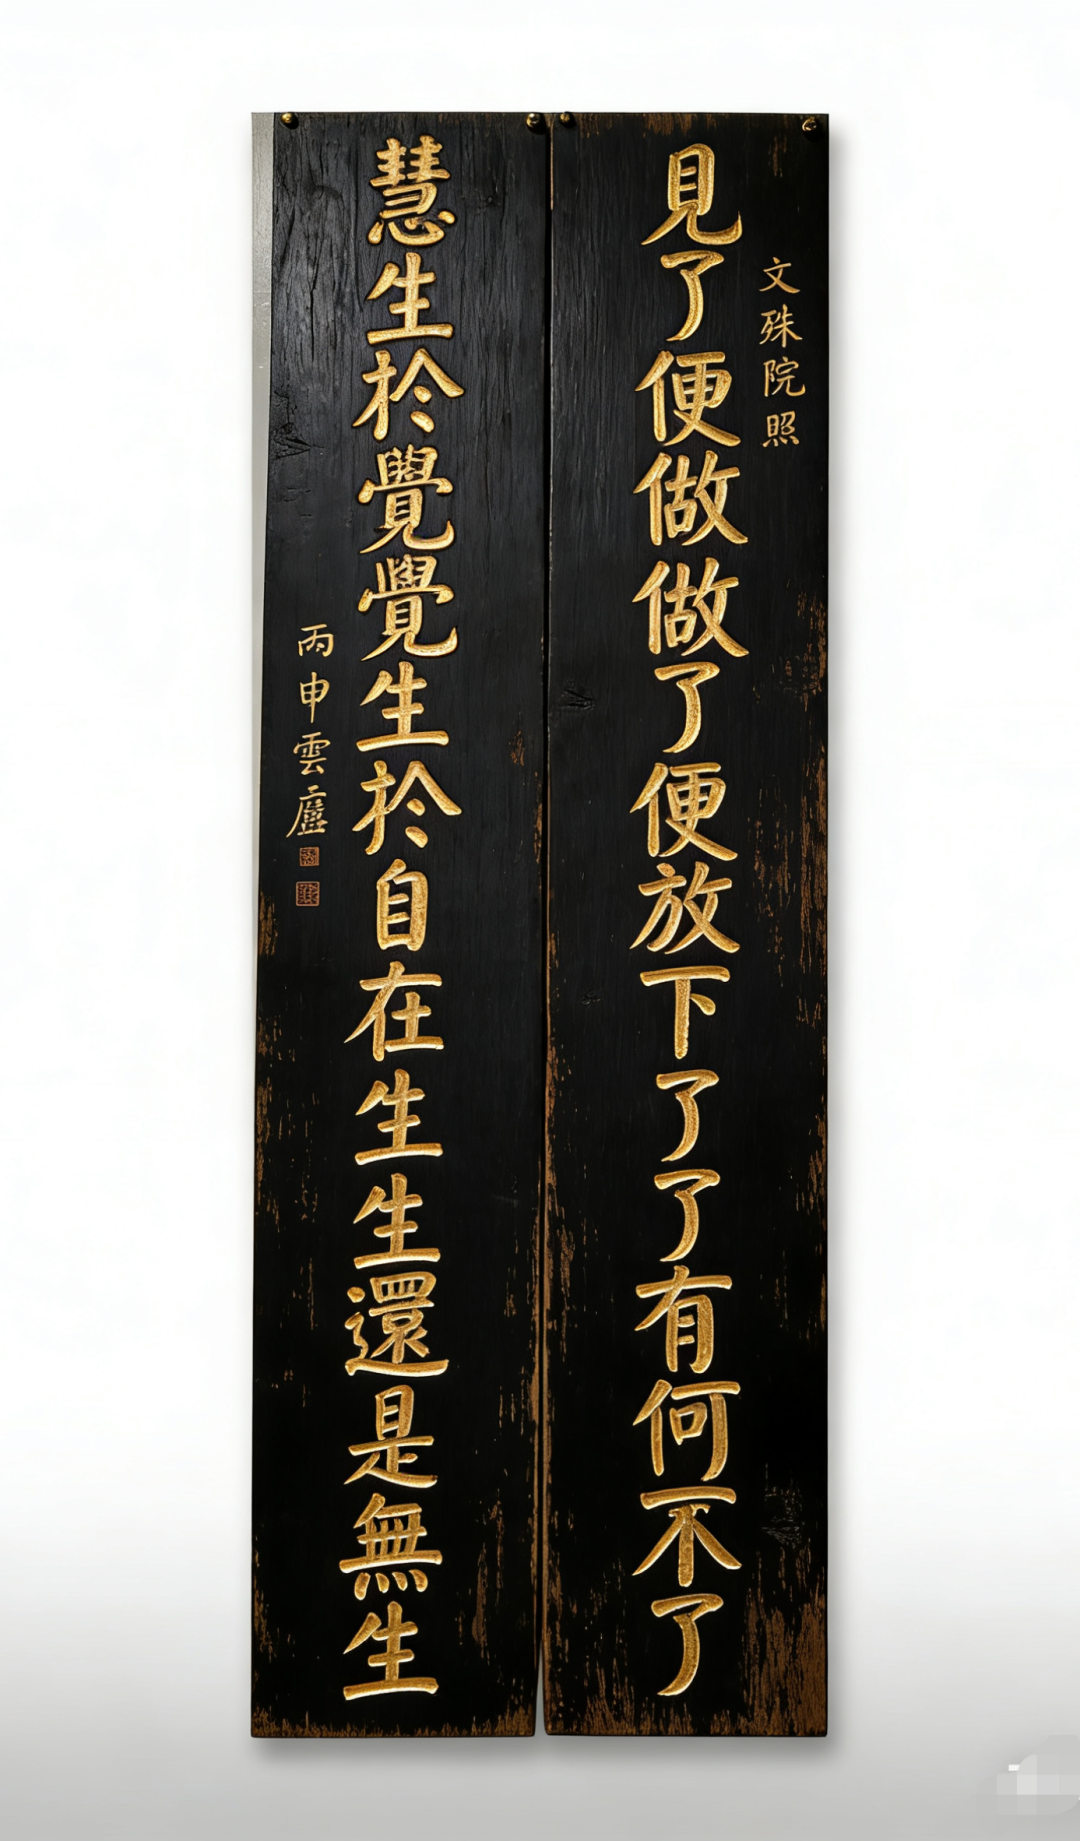 文殊院照
見了便做做了便放下了了有何不了
慧生於覺覺生於自在生生還是無生
丙申雲廬